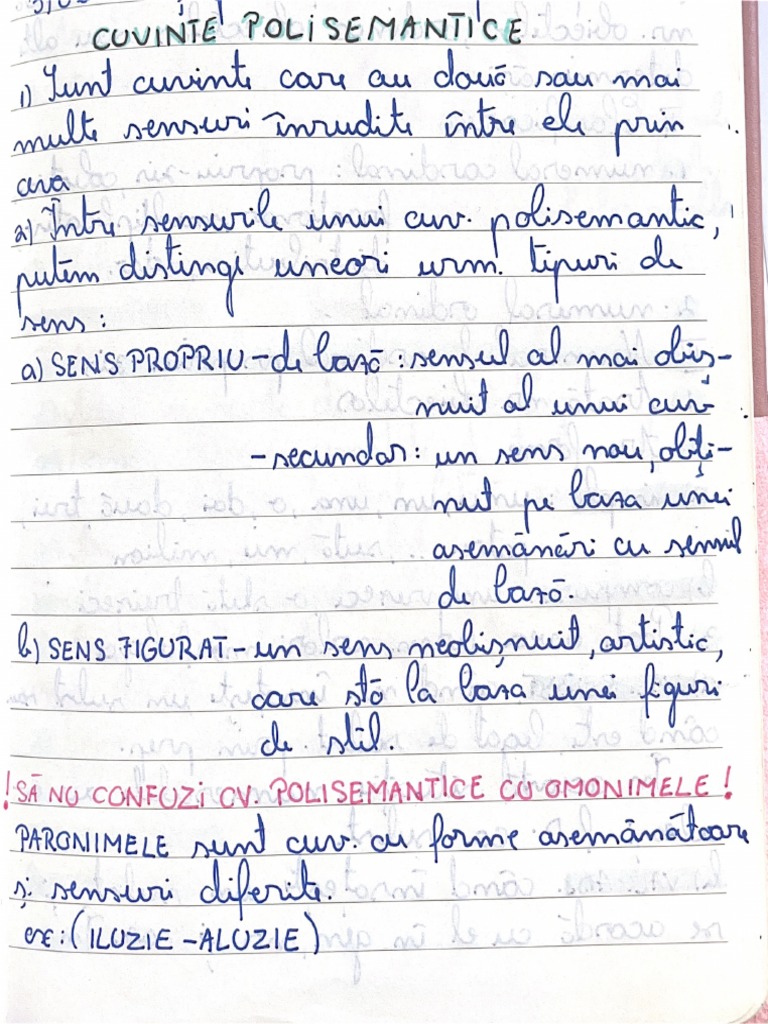 CUVINTE POLISEMANTICE
1) Sunt cuvinte care au două sau mai
multe sensuri înrudite între ele prin
ava
2) Între sensurile unui cuv. polisemantic,
putem distinge uneori urm. tipuri de
sens:
a) SENS PROPRIU - de bază: sensul al mai obiș-
nuit al unui cuv.
- secundar: un sens nou, obți-
nut pe baza unei
asemănări cu sensul
de bază.
b) SENS FIGURAT - un sens neobișnuit, artistic,
care stă la baza unei figuri
de stil.
! SĂ NU CONFUZI CV. POLISEMANTICE CU OMONIMELE !
PARONIMELE sunt cuv. cu forme asemănătoare
și sensuri diferite.
ex: (ILUZIE - ALUZIE)